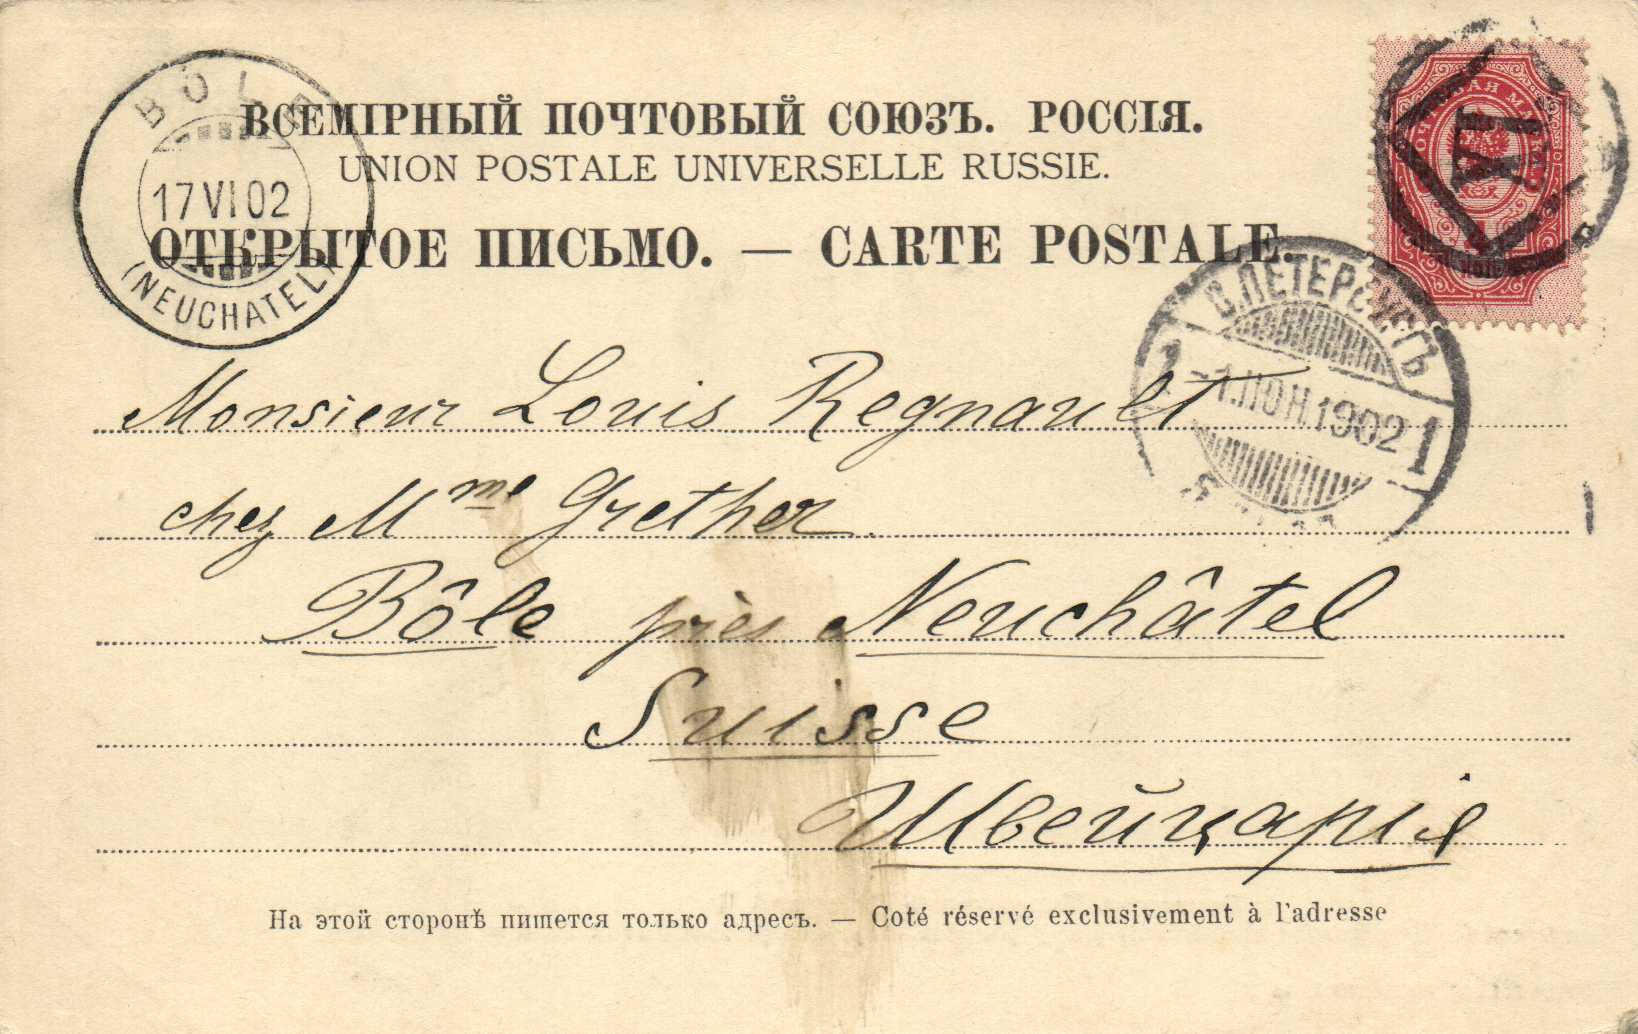 ВСЕМІРНЫЙ ПОЧТОВЫЙ СОЮЗЪ. РОССІЯ.
UNION POSTALE UNIVERSELLE RUSSIE.
ОТКРЫТОЕ ПИСЬМО. — CARTE POSTALE.
BÔLE
17 VI 02
(NEUCHATEL)
ПОЧТОВАЯ МАРКА
XI
С.ПЕТЕРБУРГЪ
1 -1.ІЮН.1902 1
Monsieur Louis Regnault
chez Mme Grether.
Bôle près Neuchâtel
Suisse
Швейцарія
На этой сторонѣ пишется только адресъ. — Coté réservé exclusivement à l'adresse